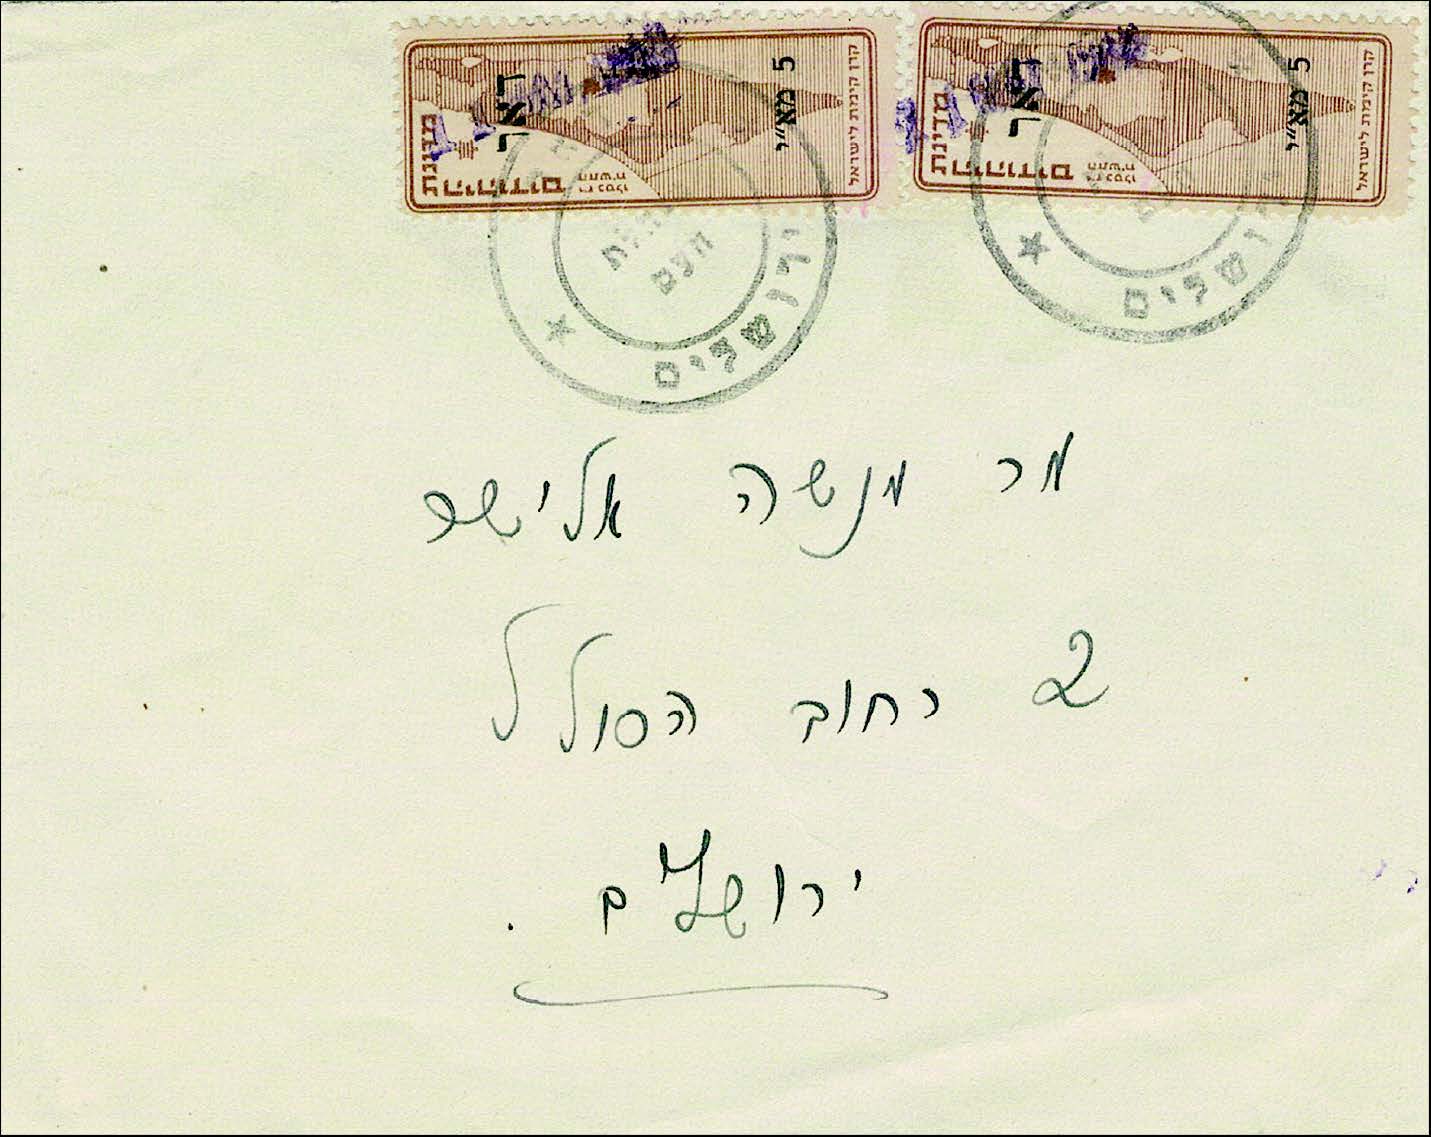 מדינת
היהודים
דאר
5 מא״י
קרן קימת לישראל
מדינת
היהודים
דאר
5 מא״י
קרן קימת לישראל
מנהלת
העם
ירושלים
ושלים
מר מנשה אלישר
2 רחוב הסולל
ירושלים .